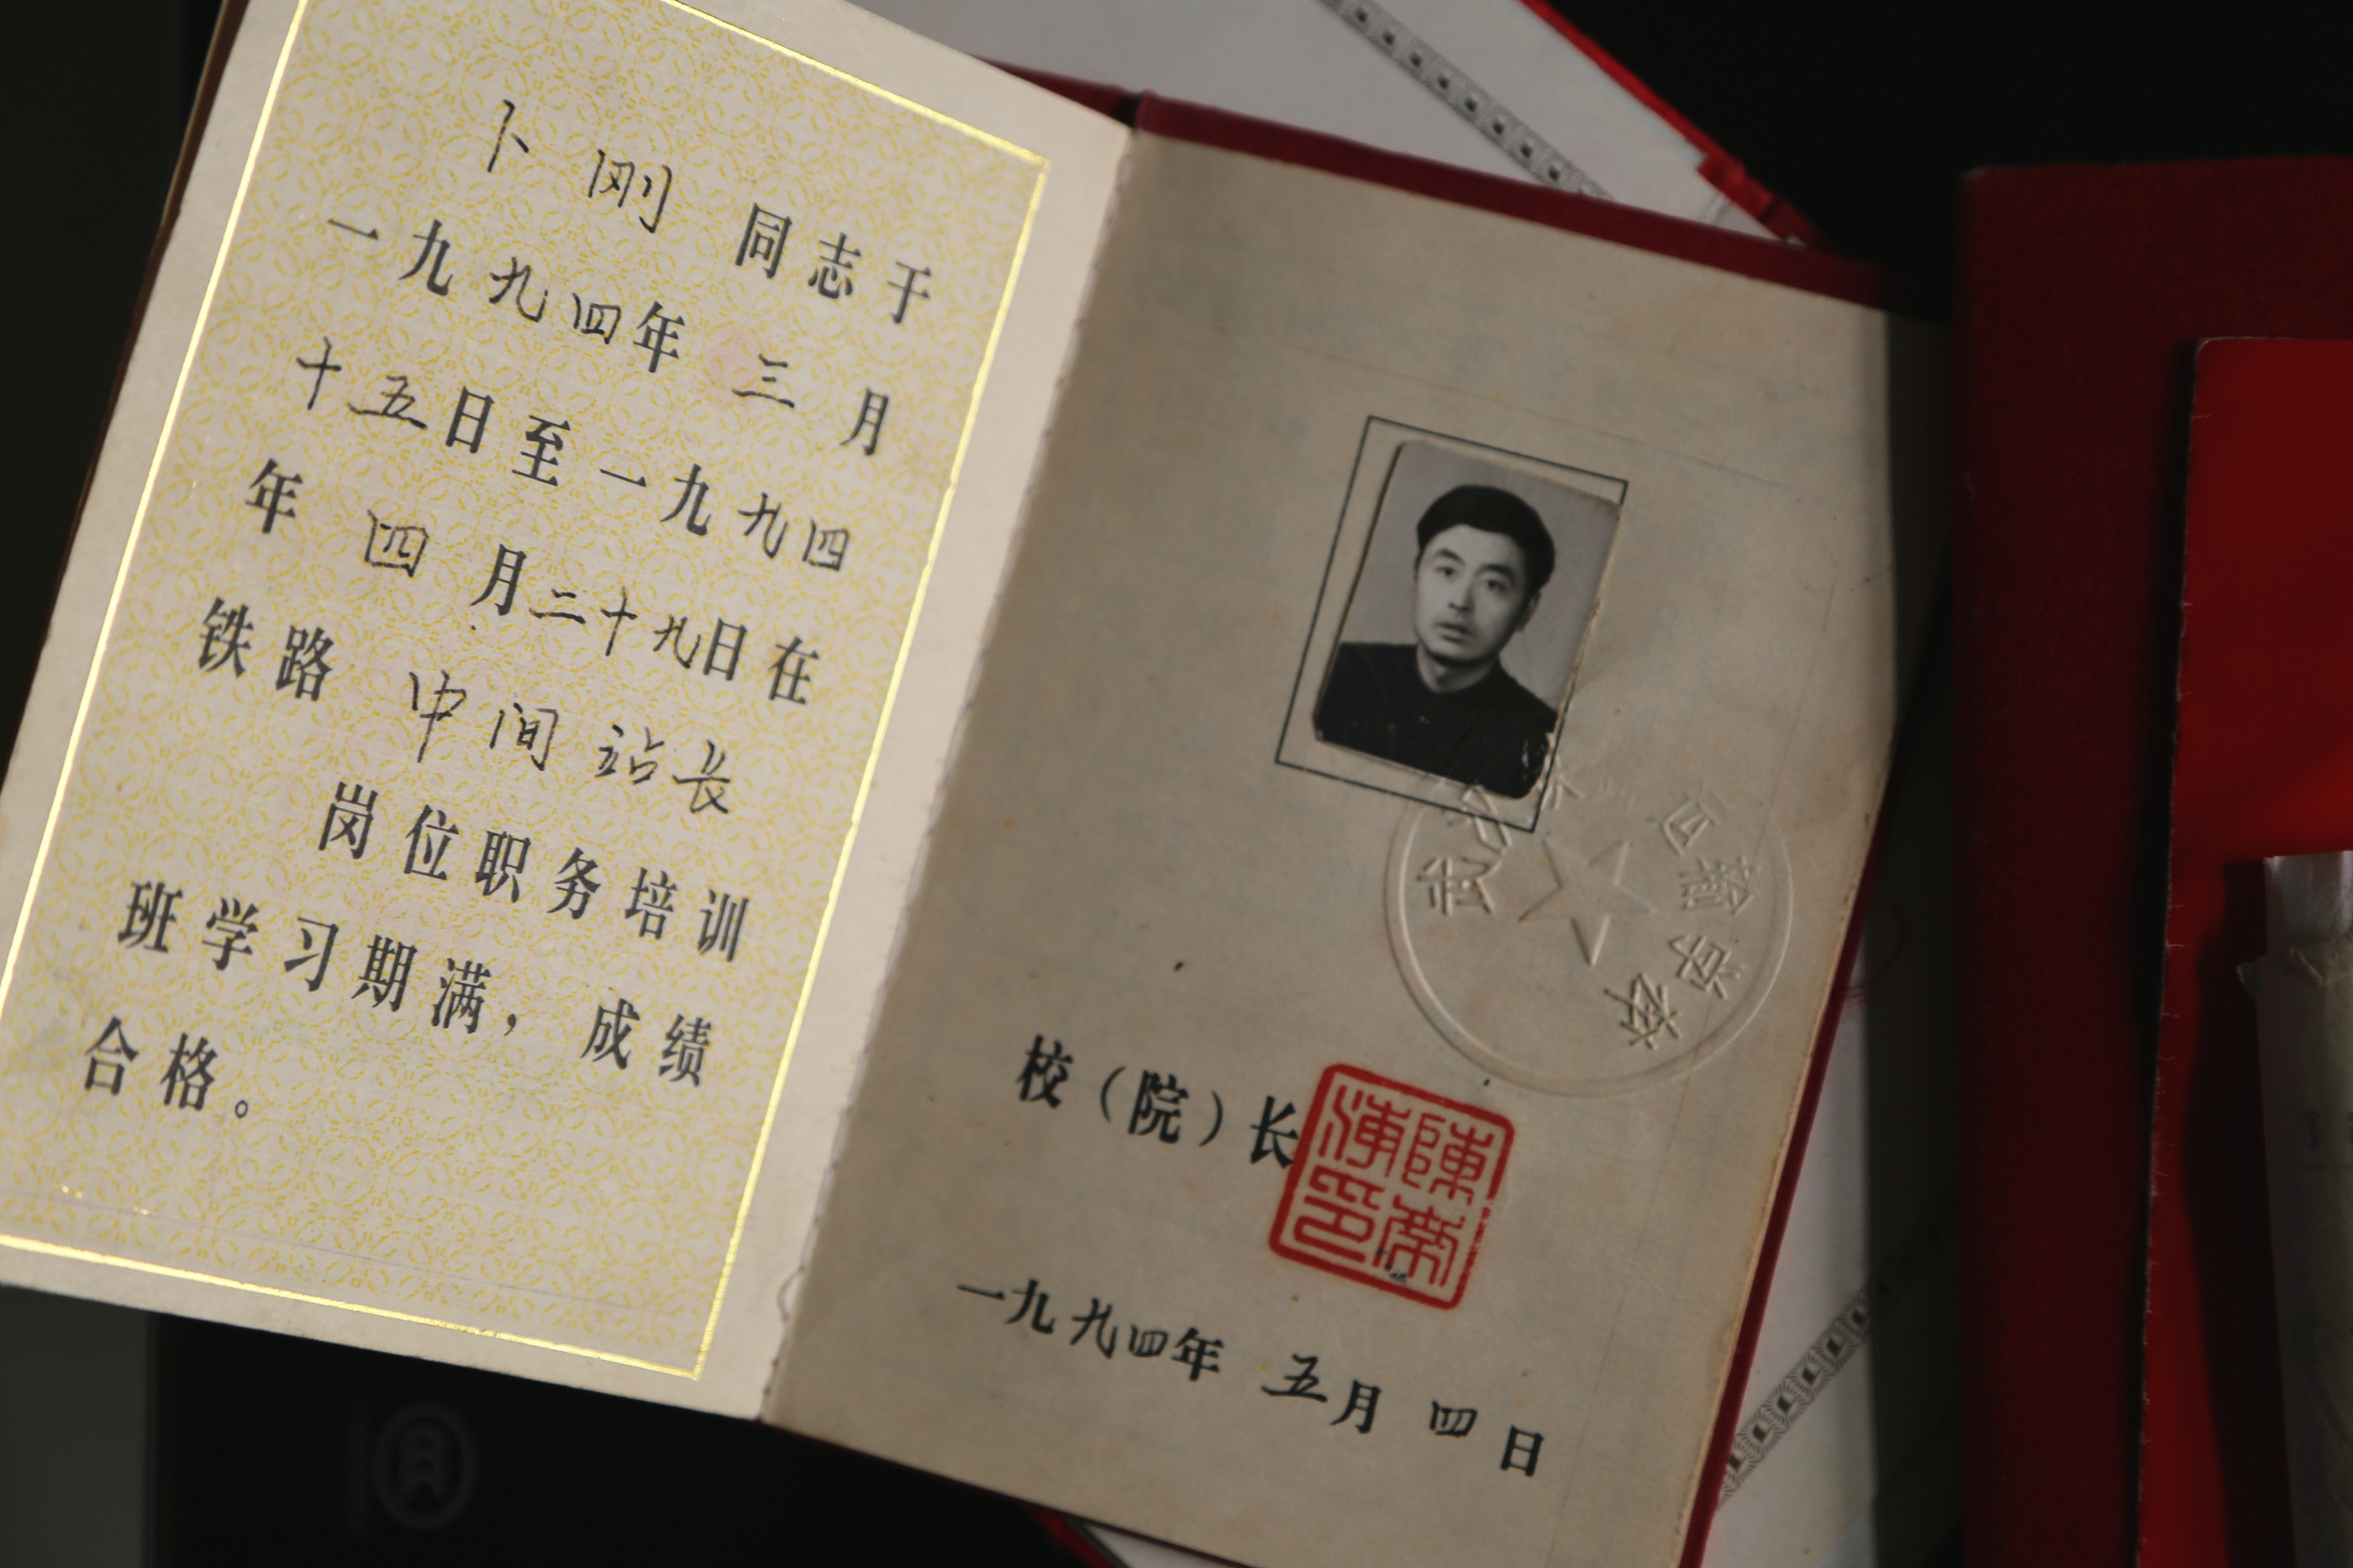 卜刚 同志于
一九九四年 三月
十五日至一九九四
年 四 月二十九日在
铁路 中间站长
岗位职务培训
班学习期满，成绩
合格。
校（院）长
一九九四年 五月 四日